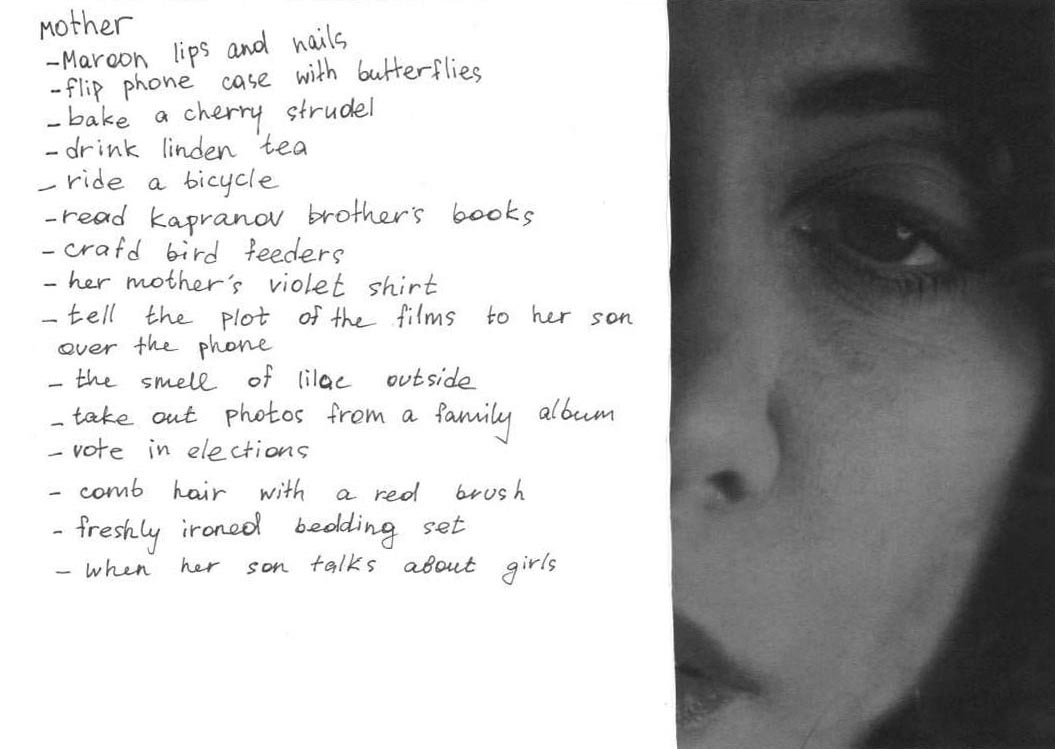 mother
- Maroon lips and nails
- flip phone case with butterflies
- bake a cherry strudel
- drink linden tea
- ride a bicycle
- read Kapranov brother's books
- crafd bird feeders
- her mother's violet shirt
- tell the plot of the films to her son
over the phone
- the smell of lilac outside
- take out photos from a family album
- vote in elections
- comb hair with a red brush
- freshly ironed bedding set
- when her son talks about girls